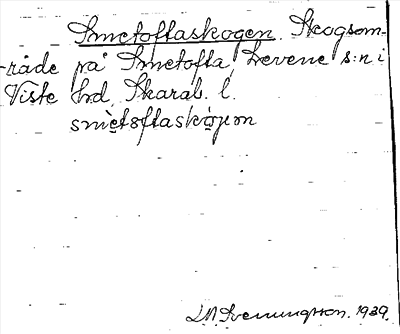 Smetoftaskogen. Skogsom-
råde på Smetofta, Levene s:n i
Viste hd, Skarab. l.
smètsftaskòɡεn
L M Svenungsson. 1939.